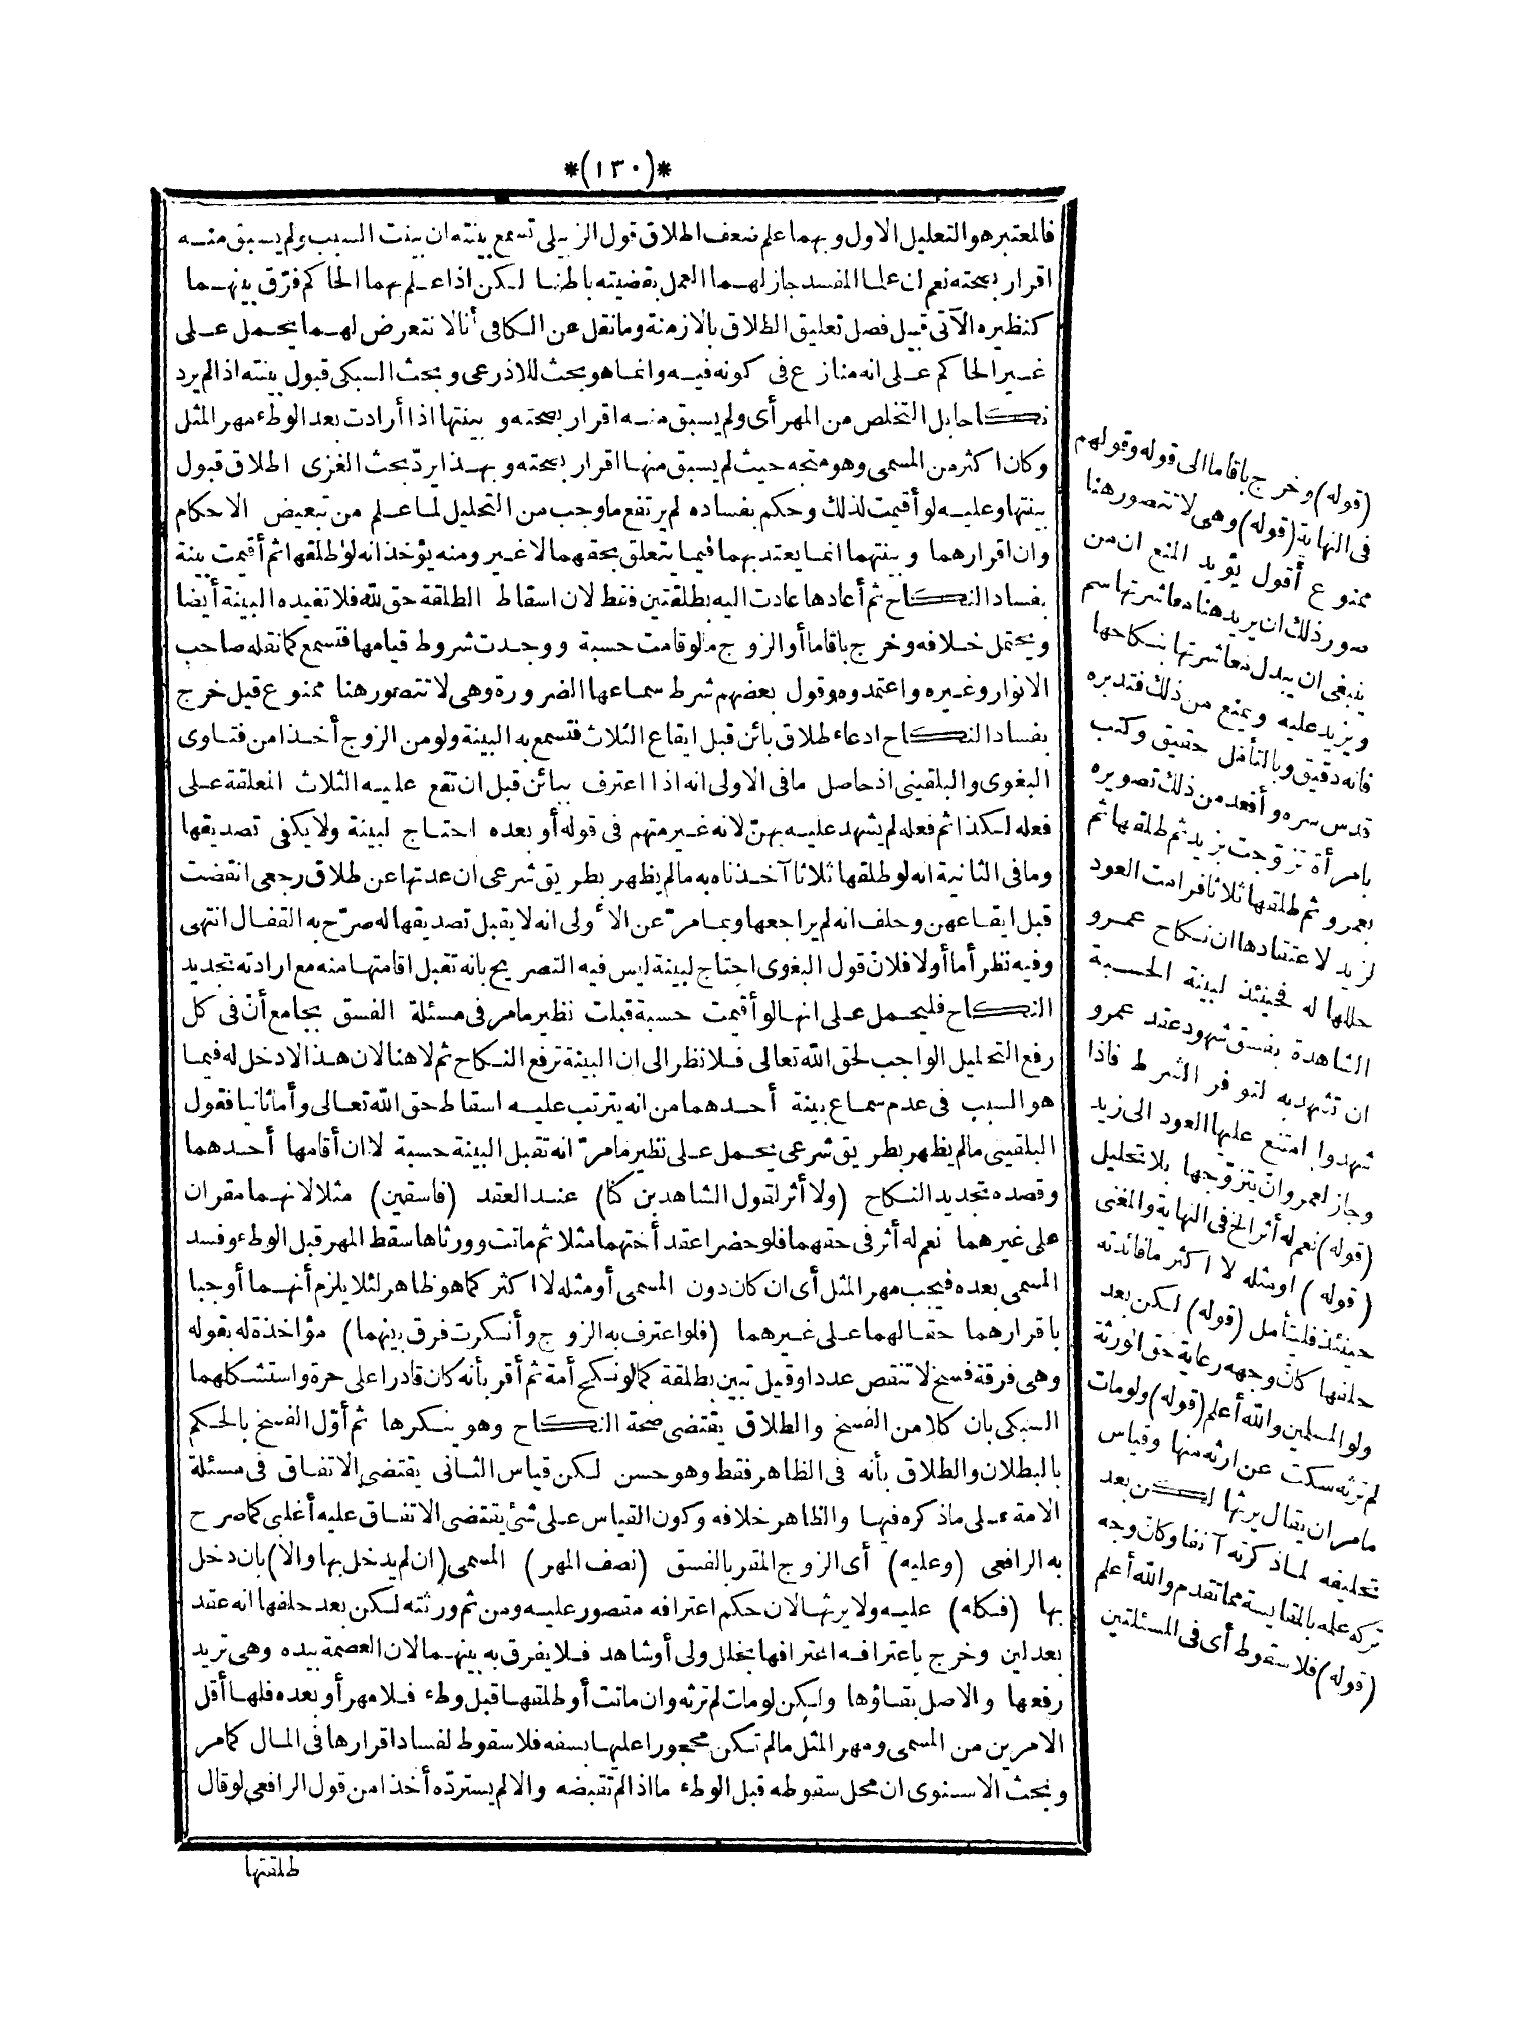 *(١٣٠)*
فالمعتبر هو التعليل الاول وبهما علم ضعف اطلاق قول الزبيلى تسمع بينته ان بينت السبب ولم يسبق منه
اقرار بصحته نعم ان علما المفسد جاز لهما العمل بقضيته باطنا لكن اذا علم بهما الحاكم فرّق بينهما
كنظيره الآتى قبيل فصل تعليق الطلاق بالازمنة وما نقل عن الكافى أنا لا نتعرض لهما يحمل على
غير الحاكم على انه منازع فى كونه فيه وانما هو بحث للاذرعى وبحث السبكى قبول بينته اذا لم يرد
نكاحا بل التخلص من المهر أى ولم يسبق منه اقرار بصحته وبينتها اذا أرادت بعد الوطء مهر المثل
وكان اكثر من المسمى وهو متجه حيث لم يسبق منها اقرار بصحته وبهذا يردّ بحث الغزى اطلاق قبول
بينتها وعليه لو أقيمت لذلك وحكم بفساده لم يرتفع ما وجب من التحليل لما علم من تبعيض الاحكام
وان اقرارهما وبينتهما انما يعتد بهما فيما يتعلق بحقهما لا غير ومنه يؤخذ انه لو طلقها ثم أقيمت بينة
بفساد النكاح ثم أعادها عادت اليه بطلقتين فقط لان اسقاط الطلقة حق لله فلا تفيده البينة أيضا
ويحتمل خلافه وخرج باقاما أو الزوج ما لو قامت حسبة ووجدت شروط قيامها فتسمع كما نقله صاحب
الانوار وغيره واعتمدوه وقول بعضهم شرط سماعها الضرورة وهى لا تتصور هنا ممنوع قيل خرج
بفساد النكاح ادعاء طلاق بائن قبل ايقاع الثلاث فتسمع به البينة ولو من الزوج أخذا من فتاوى
البغوى والبلقينى اذ حاصل ما فى الاولى انه اذا اعترف ببائن قبل ان تقع عليه الثلاث المعلقة على
فعله لكذا ثم فعله لم يشهد عليه بهنّ لانه غير متهم فى قوله أو بعده احتاج لبينة ولا يكفى تصديقها
وما فى الثانية انه لو طلقها ثلاثا آخذناه به ما لم يظهر بطريق شرعى ان عدتها عن طلاق رجعى انقضت
قبل ايقاعهن وحلف انه لم يراجعها وبما مرّ عن الأولى انه لا يقبل تصديقها له صرّح به القفال انتهى
وفيه نظر أما أولا فلانّ قول البغوى احتاج لبينة ليس فيه التصريح بانه تقبل اقامتها منه مع ارادته تجديد
النكاح فليحمل على انها لو أقيمت حسبة قبلت نظير ما مر فى مسئلة الفسق بجامع أنّ فى كل
رفع التحليل الواجب لحق الله تعالى فلا نظر الى ان البينة ترفع النكاح ثم لا هنا لان هذا لا دخل له فيما
هو السبب فى عدم سماع بينة أحدهما من انه يترتب عليه اسقاط حق الله تعالى وأما ثانيا فقول
البلقينى ما لم يظهر بطريق شرعى يحمل على نظير ما مرّ انه تقبل البينة حسبة لا ان أقامها أحدهما
وقصده تجديد النكاح (ولا أثر لقول الشاهدين كنا) عند العقد (فاسقين) مثلا لانهما مقران
على غيرهما نعم له أثر فى حقهما فلو حضرا عقد أختهما مثلا ثم ماتت وورثاها سقط المهر قبل الوطء وفسد
المسمى بعده فيجب مهر المثل أى ان كان دون المسمى أو مثله لا اكثر كما هو ظاهر لئلا يلزم أنهما أوجبا
باقرارهما حقا لهما على غيرهما (فلو اعترف به الزوج وأنكرت فرق بينهما) مؤاخذة له بقوله
وهى فرقة فسخ لا تنقص عددا وقيل تبين بطلقة كما لو نكح أمة ثم أقر بأنه كان قادرا على حرة واستشكلهما
السبكى بان كلا من الفسخ والطلاق يقتضى صحة النكاح وهو ينكرها ثم أوّل الفسخ بالحكم
بالبطلان والطلاق بأنه فى الظاهر فقط وهو حسن لكن قياس الثانى يقتضى الاتفاق فى مسئلة
الامة على ما ذكره فيها والظاهر خلافه وكون القياس على شئ يقتضى الاتفاق عليه أغلبى كما صرح
به الرافعى (وعليه) أى الزوج المقر بالفسق (نصف المهر) المسمى (ان لم يدخل بها والا) بان دخل
بها (فكله) عليه ولا يرثها لان حكم اعترافه مقصور عليه ومن ثم ورثته لكن بعد حلفها انه عقد
بعدلين وخرج باعترافه اعترافها بخلل ولى أو شاهد فلا يفرق به بينهما لان العصمة بيده وهى تريد
رفعها والاصل بقاؤها ولكن لو مات لم ترثه وان ماتت أو طلقها قبل وطء فلا مهر أو بعده فلها أقل
الامرين من المسمى ومهر المثل ما لم تكن محجورا عليها بسفه فلا سقوط لفساد اقرارها فى المال كما مر
وبحث الاسنوى ان محل سقوطه قبل الوطء ما اذا لم تقبضه والا لم يستردّه أخذا من قول الرافعى لو قال
طلقتها
(قوله) وخرج باقاما الى قوله وقولهم
فى النهاية (قوله) وهى لا تتصور هنا
ممنوع أقول يؤيد المنع ان من
صور ذلك ان يريد هنا معاشرتها سم
ينبغى ان يبدل معاشرتها بنكاحها
ويزيد عليه ويمنع من ذلك فتدبره
فانه دقيق وبالتأمل حقيق وكتب
قدس سره وأقعد من ذلك تصويره
بامرأة تزوّجت بزيد ثم طلقها ثم
بعمرو ثم طلقها ثلاثا فرامت العود
لزيد لاعتقادها ان نكاح عمرو
حللها له فحينئذ لبينة الحسبة
الشاهدة بفسق شهود عقد عمرو
ان تشهد به لتوفر الشرط فاذا
شهدوا امتنع عليها العود الى زيد
وجاز لعمرو ان يتزوّجها بلا تحليل
(قوله) نعم له أثر الخ فى النهاية والمغنى
(قوله) او مثله لا اكثر ما فائدته
حينئذ فليتأمل (قوله) لكن بعد
حلفها كان وجهه رعاية حق الورثة
ولو المسلمين والله أعلم (قوله) ولو مات
لم ترثه سكت عن ارثه منها وقياس
ما مر ان يقال يرثها لكن بعد
تحليفه لما ذكرته آنفا وكان وجه
تركه علمه بالمقايسة مما تقدم والله أعلم
(قوله) فلا سقوط أى فى المسئلتين